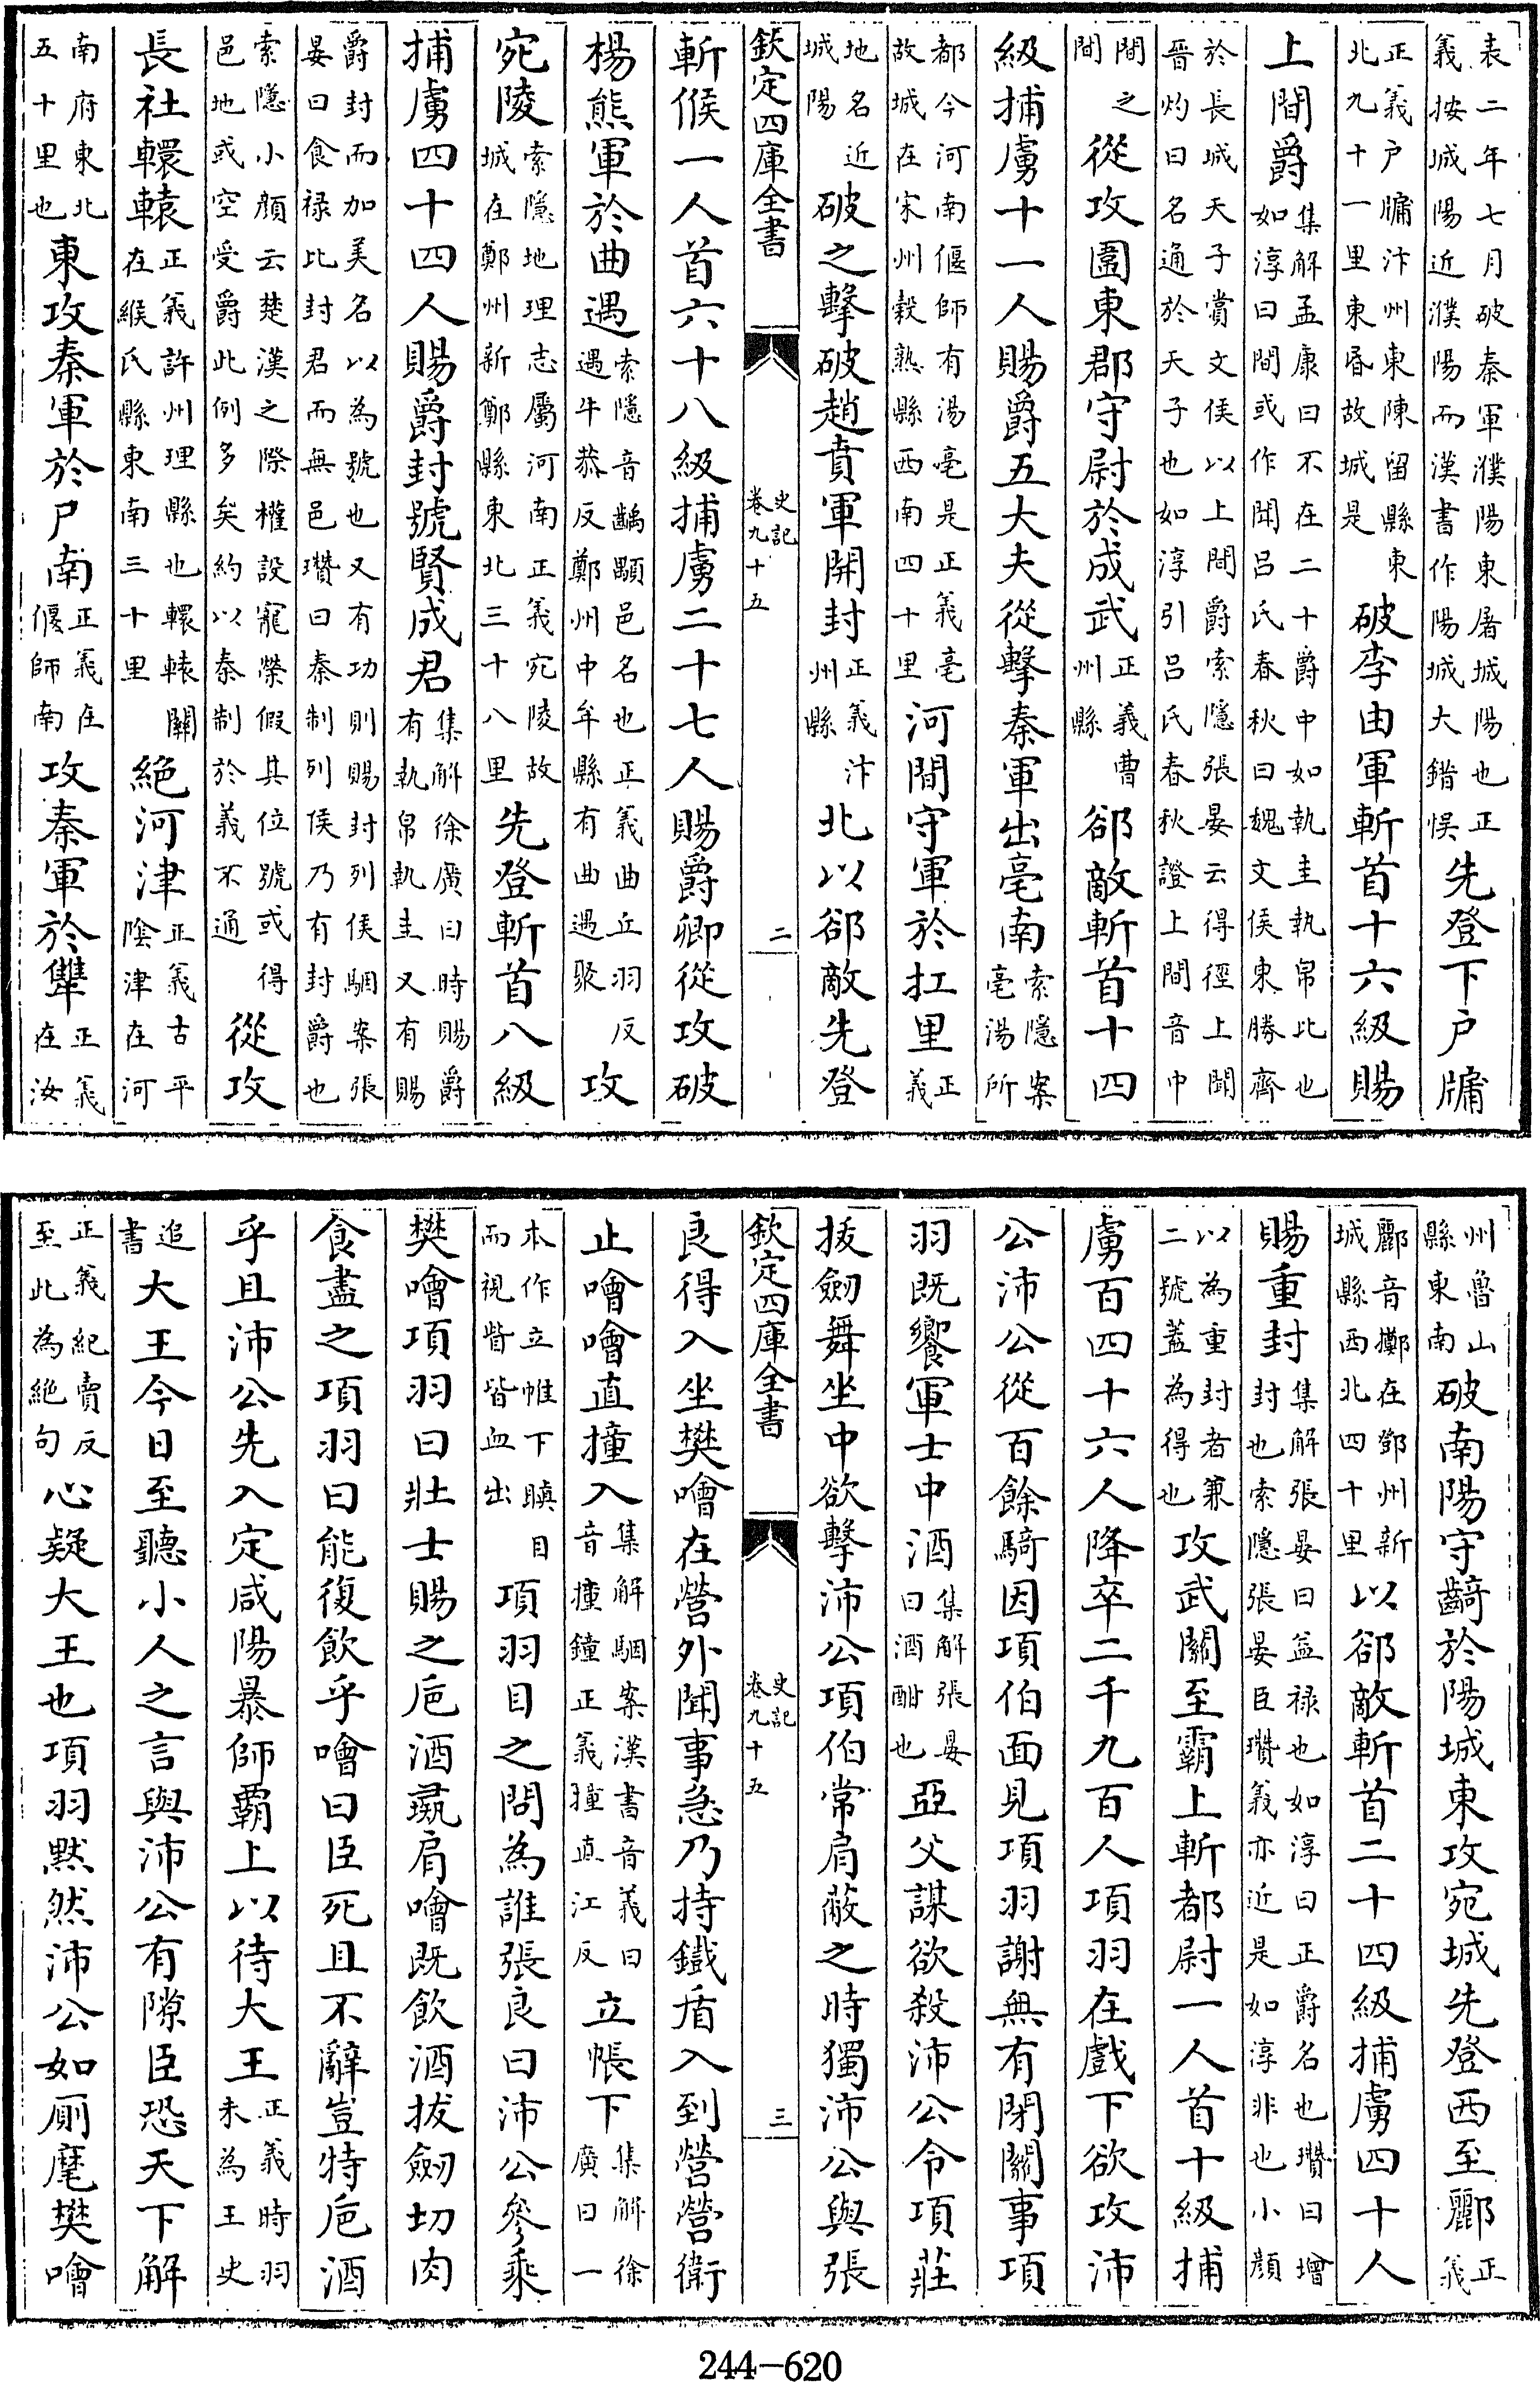 表二年七月破秦軍濮陽東屠城陽也正義按城陽近濮陽而漢書作陽城大錯悞先登下户牖
正義户牖汴州東陳留縣東北九十一里東昏故城是破李由軍斬首十六級賜
上間爵集解孟康曰不在二十爵中如執圭執帛比也如淳曰間或作聞吕氏春秋曰魏文侯東勝齊
於長城天子賞文侯以上間爵索隱張晏云得徑上聞晉灼曰名通於天子也如淳引吕氏春秋證上間音中
間之間從攻圍東郡守尉於成武正義曹州縣郤敵斬首十四
級捕虜十一人賜爵五大夫從擊秦軍出亳南索隱案亳湯所
都今河南偃師有湯亳是正義亳故城在宋州穀熟縣西南四十里河間守軍於扛里正義
地名近城陽破之擊破趙賁軍開封正義汴州縣北以郤敵先登
欽定四庫全書 史記卷九十五 二
斬候一人首六十八級捕虜二十七人賜爵卿從攻破
楊熊軍於曲遇索隱音齲顒邑名也正義曲丘羽反遇牛恭反鄭州中牟縣有曲遇聚攻
宛陵索隱地理志屬河南正義宛陵故城在鄭州新鄭縣東北三十八里先登斬首八級
捕虜四十四人賜爵封號賢成君集解徐廣曰時賜爵有執帛執圭又有賜
爵封而加美名以為號也又有功則賜封列侯駰案張晏曰食禄比封君而無邑瓚曰秦制列侯乃有封爵也
索隱小顔云楚漢之際權設寵榮假其位號或得邑地或空受爵此例多矣約以秦制於義不通從攻
長社轘轅正義許州理縣也轘轅關在緱氏縣東南三十里絶河津正義古平陰津在河
南府東北五十里也東攻秦軍於尸南正義在偃師南攻秦軍於犨正義在汝
州魯山縣東南破南陽守齮於陽城東攻宛城先登西至酈正義
酈音擲在鄧州新城縣西北四十里以郤敵斬首二十四級捕虜四十人
賜重封集解張晏曰益禄也如淳曰正爵名也瓚曰增封也索隱張晏臣瓚義亦近是如淳非也小顔
以為重封者兼二號蓋為得也攻武關至霸上斬都尉一人首十級捕
虜百四十六人降卒二千九百人項羽在戲下欲攻沛
公沛公從百餘騎因項伯面見項羽謝無有閉關事項
羽既饗軍士中酒集解張晏曰酒酣也亞父謀欲殺沛公令項莊
拔劒舞坐中欲擊沛公項伯常肩蔽之時獨沛公與張
欽定四庫全書 史記卷九十五 三
良得入坐樊噲在營外聞事急乃持鐵盾入到營營衛
止噲噲直撞入集解駰案漢書音義曰音撞鐘正義撞直江反立帳下集解徐廣曰一
本作立帷下瞋目而視眥皆血出項羽目之問為誰張良曰沛公參乘
樊噲項羽曰壯士賜之卮酒彘肩噲既飲酒拔劒切肉
食盡之項羽曰能復飲乎噲曰臣死且不辭豈特卮酒
乎且沛公先入定咸陽暴師霸上以待大王正義時羽未為王史
追書大王今日至聽小人之言與沛公有隙臣恐天下解
正義紀賣反至此為絶句心疑大王也項羽黙然沛公如厠麾樊噲
244-620